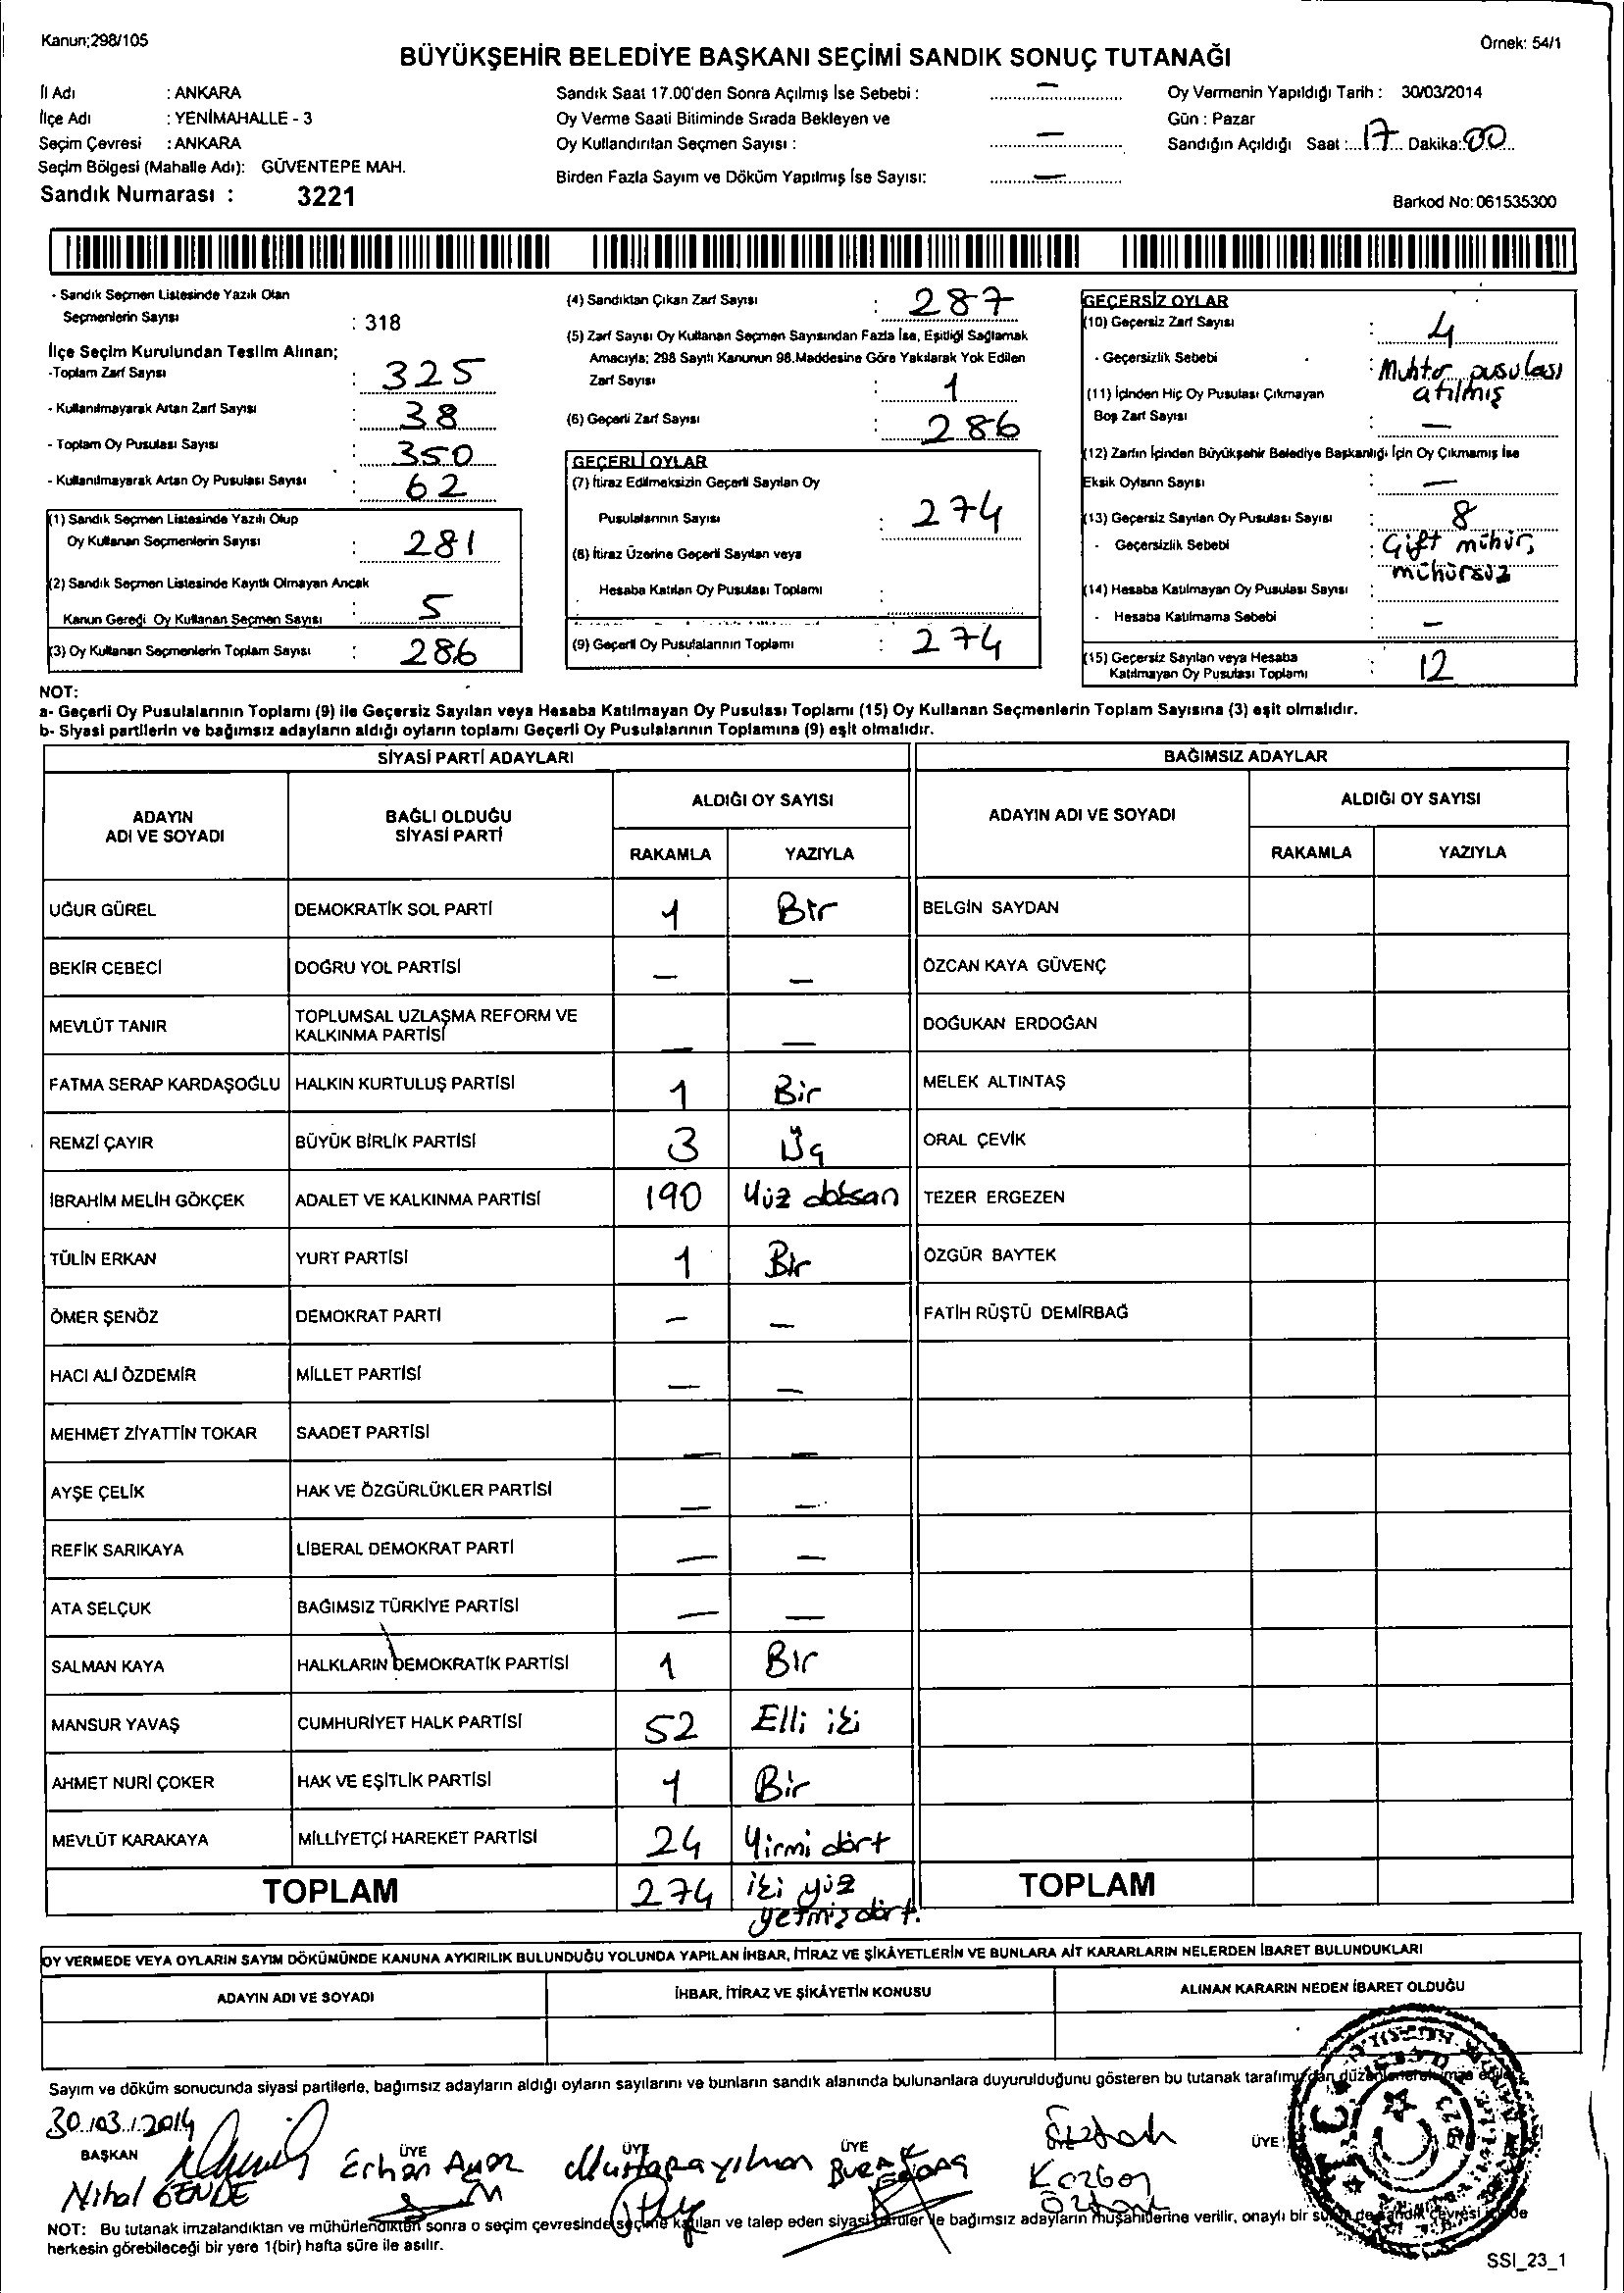 Kanun:298/105
Örnek: 54/1
BÜYÜKŞEHİR BELEDİYE BAŞKANI SEÇİMİ SANDIK SONUÇ TUTANAĞI
İl Adı : ANKARA
İlçe Adı : YENİMAHALLE - 3
Seçim Çevresi : ANKARA
Seçim Bölgesi (Mahalle Adı): GÜVENTEPE MAH.
Sandık Numarası : 3221
Sandık Saat 17.00'den Sonra Açılmış İse Sebebi : —
Oy Verme Saati Bitiminde Sırada Bekleyen ve
Oy Kullandırılan Seçmen Sayısı : —
Birden Fazla Sayım ve Döküm Yapılmış İse Sayısı: —
Oy Vermenin Yapıldığı Tarih : 30/03/2014
Gün : Pazar
Sandığın Açıldığı Saat : 17 Dakika: 00
Barkod No: 061535300
- Sandık Seçmen Listesinde Yazılı Olan
Seçmenlerin Sayısı : 318
İlçe Seçim Kurulundan Teslim Alınan;
-Toplam Zarf Sayısı : 325
- Kullanılmayarak Artan Zarf Sayısı : 38
- Toplam Oy Pusulası Sayısı : 350
- Kullanılmayarak Artan Oy Pusulası Sayısı : 62
(1) Sandık Seçmen Listesinde Yazılı Olup
Oy Kullanan Seçmenlerin Sayısı : 281
(2) Sandık Seçmen Listesinde Kayıtlı Olmayan Ancak
Kanun Gereği Oy Kullanan Seçmen Sayısı : 5
(3) Oy Kullanan Seçmenlerin Toplam Sayısı : 286
(4) Sandıktan Çıkan Zarf Sayısı : 287
(5) Zarf Sayısı Oy Kullanan Seçmen Sayısından Fazla İse, Eşitliği Sağlamak
Amacıyla; 298 Sayılı Kanunun 98.Maddesine Göre Yakılarak Yok Edilen
Zarf Sayısı : 1
(6) Geçerli Zarf Sayısı : 286
GEÇERLİ OYLAR
(7) İtiraz Edilmeksizin Geçerli Sayılan Oy
Pusulalarının Sayısı : 274
(8) İtiraz Üzerine Geçerli Sayılan veya
Hesaba Katılan Oy Pusulası Toplamı :
(9) Geçerli Oy Pusulalarının Toplamı : 274
GEÇERSİZ OYLAR
(10) Geçersiz Zarf Sayısı : 4
- Geçersizlik Sebebi : Muhtar pusulası
atılmış
(11) İçinden Hiç Oy Pusulası Çıkmayan
Boş Zarf Sayısı : —
(12) Zarfın İçinden Büyükşehir Belediye Başkanlığı İçin Oy Çıkmamış İse
Eksik Oyların Sayısı : —
(13) Geçersiz Sayılan Oy Pusulası Sayısı : 8
- Geçersizlik Sebebi : Çift mühür,
mühürsüz
(14) Hesaba Katılmayan Oy Pusulası Sayısı :
- Hesaba Katılmama Sebebi : —
(15) Geçersiz Sayılan veya Hesaba
Katılmayan Oy Pusulası Toplamı : 12
NOT:
a- Geçerli Oy Pusulalarının Toplamı (9) ile Geçersiz Sayılan veya Hesaba Katılmayan Oy Pusulası Toplamı (15) Oy Kullanan Seçmenlerin Toplam Sayısına (3) eşit olmalıdır.
b- Siyasi partilerin ve bağımsız adayların aldığı oyların toplamı Geçerli Oy Pusulalarının Toplamına (9) eşit olmalıdır.
SİYASİ PARTİ ADAYLARI
ADAYIN ADI VE SOYADI BAĞLI OLDUĞU SİYASİ PARTİ ALDIĞI OY SAYISI
RAKAMLA YAZIYLA
UĞUR GÜREL DEMOKRATİK SOL PARTİ 1 Bir
BEKİR CEBECİ DOĞRU YOL PARTİSİ — —
MEVLÜT TANIR TOPLUMSAL UZLAŞMA REFORM VE KALKINMA PARTİSİ — —
FATMA SERAP KARDAŞOĞLU HALKIN KURTULUŞ PARTİSİ 1 Bir
REMZİ ÇAYIR BÜYÜK BİRLİK PARTİSİ 3 Üç
İBRAHİM MELİH GÖKÇEK ADALET VE KALKINMA PARTİSİ 190 Yüz doksan
TÜLİN ERKAN YURT PARTİSİ 1 Bir
ÖMER ŞENÖZ DEMOKRAT PARTİ — —
HACI ALİ ÖZDEMİR MİLLET PARTİSİ — —
MEHMET ZİYATTİN TOKAR SAADET PARTİSİ — —
AYŞE ÇELİK HAK VE ÖZGÜRLÜKLER PARTİSİ — —
REFİK SARIKAYA LİBERAL DEMOKRAT PARTİ — —
ATA SELÇUK BAĞIMSIZ TÜRKİYE PARTİSİ — —
SALMAN KAYA HALKLARIN DEMOKRATİK PARTİSİ 1 Bir
MANSUR YAVAŞ CUMHURİYET HALK PARTİSİ 52 Elli iki
AHMET NURİ ÇOKER HAK VE EŞİTLİK PARTİSİ 1 Bir
MEVLÜT KARAKAYA MİLLİYETÇİ HAREKET PARTİSİ 24 Yirmi dört
TOPLAM 274 iki yüz
yetmiş dört.
BAĞIMSIZ ADAYLAR
ADAYIN ADI VE SOYADI ALDIĞI OY SAYISI
RAKAMLA YAZIYLA
BELGİN SAYDAN
ÖZCAN KAYA GÜVENÇ
DOĞUKAN ERDOĞAN
MELEK ALTINTAŞ
ORAL ÇEVİK
TEZER ERGEZEN
ÖZGÜR BAYTEK
FATİH RÜŞTÜ DEMİRBAĞ
TOPLAM
OY VERMEDE VEYA OYLARIN SAYIM DÖKÜMÜNDE KANUNA AYKIRILIK BULUNDUĞU YOLUNDA YAPILAN İHBAR, İTİRAZ VE ŞİKÂYETLERİN VE BUNLARA AİT KARARLARIN NELERDEN İBARET BULUNDUKLARI
ADAYIN ADI VE SOYADI İHBAR, İTİRAZ VE ŞİKÂYETİN KONUSU ALINAN KARARIN NEDEN İBARET OLDUĞU
Sayım ve döküm sonucunda siyasi partilerle, bağımsız adayların aldığı oyların sayılarını ve bunların sandık alanında bulunanlara duyurulduğunu gösteren bu tutanak tarafımızdan
30.03.2014
BAŞKAN ÜYE ÜYE ÜYE ÜYE
Nihal Erhan Mustafa Yılmaz Burak
T.C.
NOT: Bu tutanak imzalandıktan ve mühürlendikten sonra o seçim çevresinde seçime katılan ve talep eden siyasi partiler ile bağımsız adayların müşahitlerine verilir, onaylı bir
herkesin görebileceği bir yere 1(bir) hafta süre ile asılır.
SSI_23_1